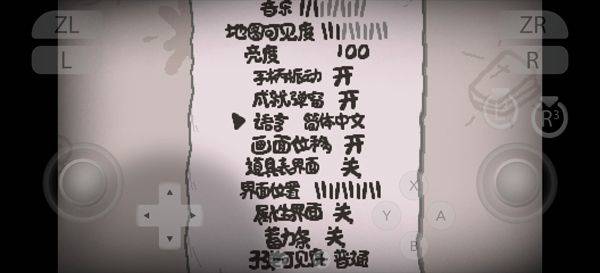 音乐
地图可见度
亮度 100
手柄振动 开
成就弹窗 开
语言 简体中文
画面位移 开
道具表界面 关
界面位置
属性界面 关
蓄力条 关
可见度 普通
ZL
L
ZR
R
L
R³
X
Y
A
B